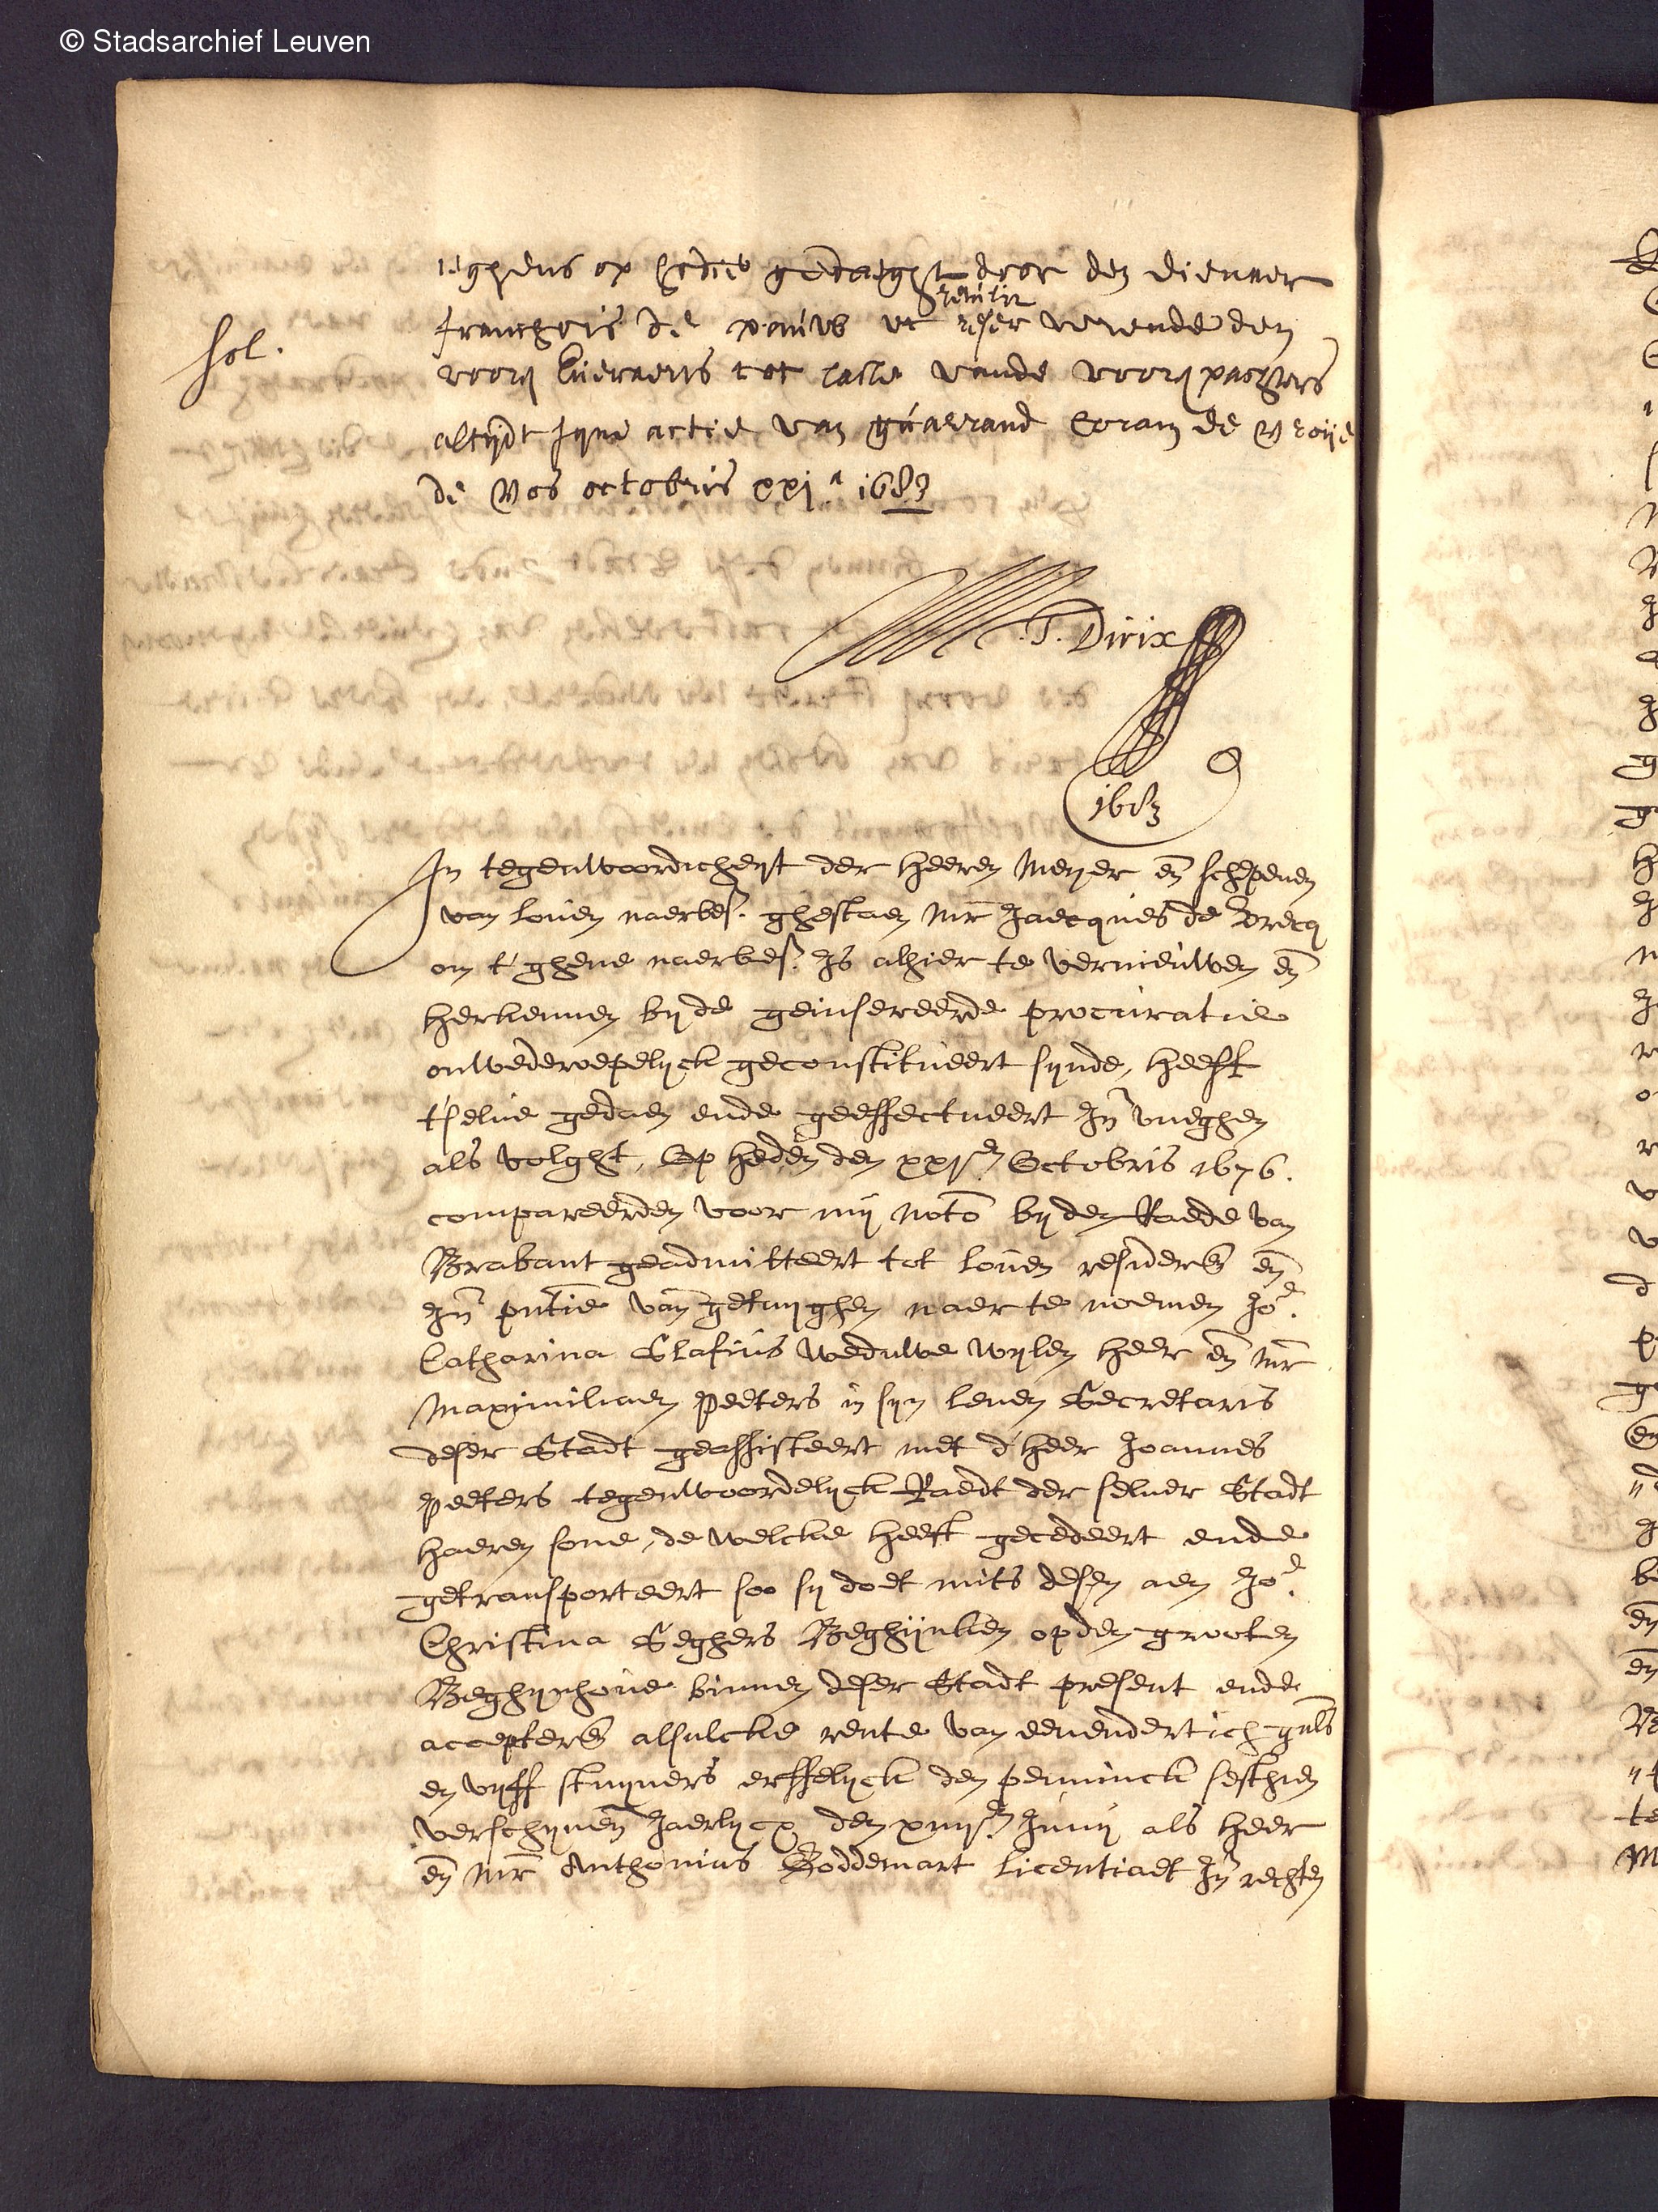 © Stadsarchief Leuven
teghens op hodie gedaeght door den dienaer
franchois de pauw ut reser verende den
sol.
voors tot laste vande voors pachters
altijdt syne actie van guarrand Coram de Vroije
de Vos octobris xxia 1683
J. Dirix
1683
In tegenwoordicheyt der heeren Meyer en schepenen
van loven naerbes. ghestaen Mr Jaecques de Brecq
om t'ghene naerbes. Is alhier te vernieuwen en
herkennen byde geinsereerde procuratie
onwederroepelyck geconstitueert synde, heeft
t'selve gedaen ende geeffectueert In vueghen
als volght, Op heden den xxisten Octobris 1676.
compareerden voor my noto byden Raede van
Brabant geadmitteert tot loven residere en
In pntie van getuyghen naer te noemen Joe.
Catharina Olafius weduwe wylen heer en Mr
Maximiliaen Peeters in syn leven Secretaris
deser Stadt geassisteert met d'heer Joannes
Peeters tegenwoordelyck Raedt der selver Stadt
haeren sone, de welcke heeft gecedeert ende
getransporteert soo sy doet mits desen aen Joe.
Christina Seghers Beghijnken opden grooten
Beghynhove binnen deser Stadt present ende
acceptere alsulcke rente van eenendertich guls
en vyff stuyvers erffelyck den penninck sesthien
verschynen Jaerlycx den Junij als heer
en Mr Anthonius Boddemart licentiaet In rechten